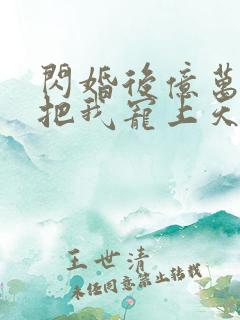 閃婚後億萬
把我寵上天
王世清
未经同意禁止转载